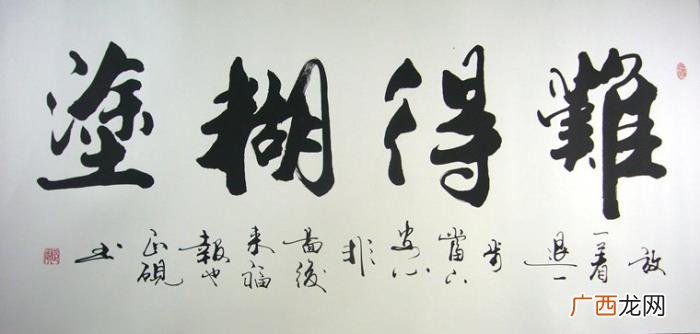 難得糊塗
放
一着
退一
步
當下
安心
非
圖後
来福
報也
硯
书
广西龙网